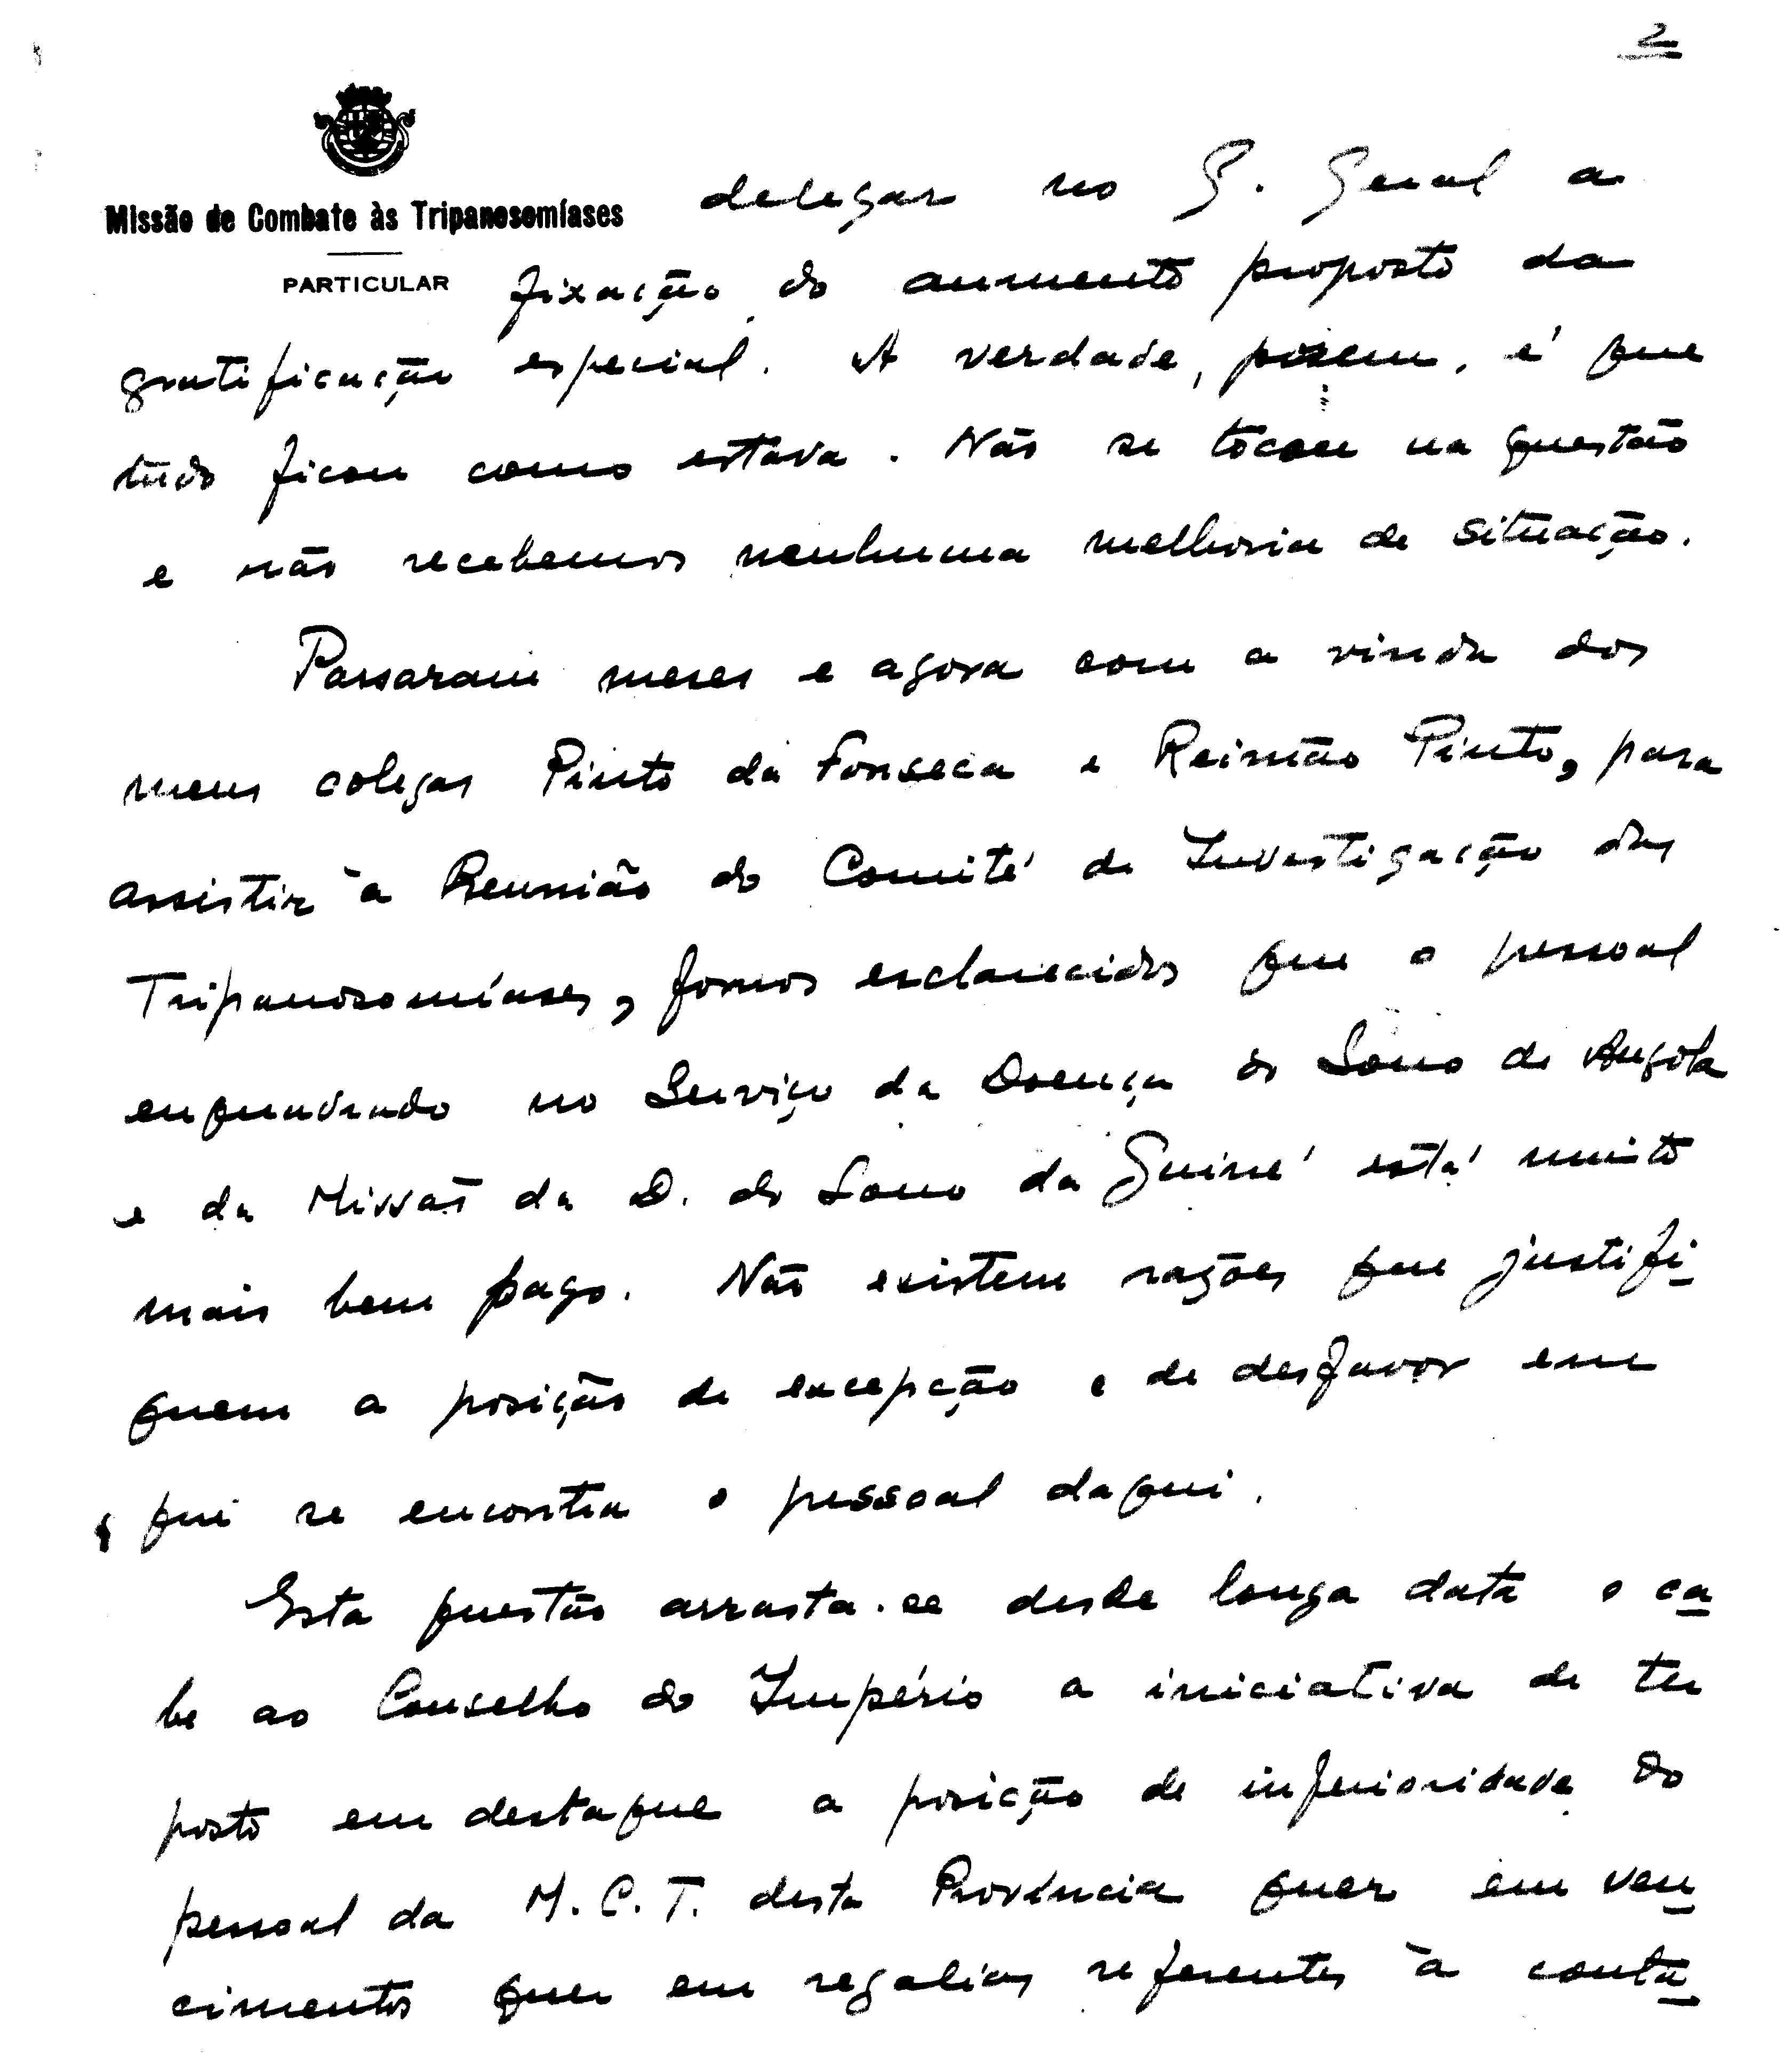 2
Missão de Combate às Tripanosomíases
PARTICULAR
delegar no G. Geral a
fixação do aumento proposto da
gratificação especial. A verdade, porem, é que
tudo ficou como estava. Não se tocou na questão
e não recebemos nenhuma melhoria de situação.
Passaram meses e agora com a vinda dos
meus colegas Pinto da Fonseca e Reimão Pinto, para
assistir à Reunião do Comité de Investigação das
Tripanosomíases, fomos esclarecidos que o pessoal
enquadrado no Serviço da Doença do Sono de Angola
e da Missão da D. do Sono da Guiné está muito
mais bem pago. Não existem razões que justifi-
quem a posição de excepção e de desfavor em
que se encontra o pessoal daqui.
Esta questão arrasta-se desde longa data e ca-
be ao Conselho do Império a iniciativa de ter
posto em destaque a posição de inferioridade do
pessoal da M.C.T. desta Província quer em ven-
cimentos quer em regalias referentes à conta-